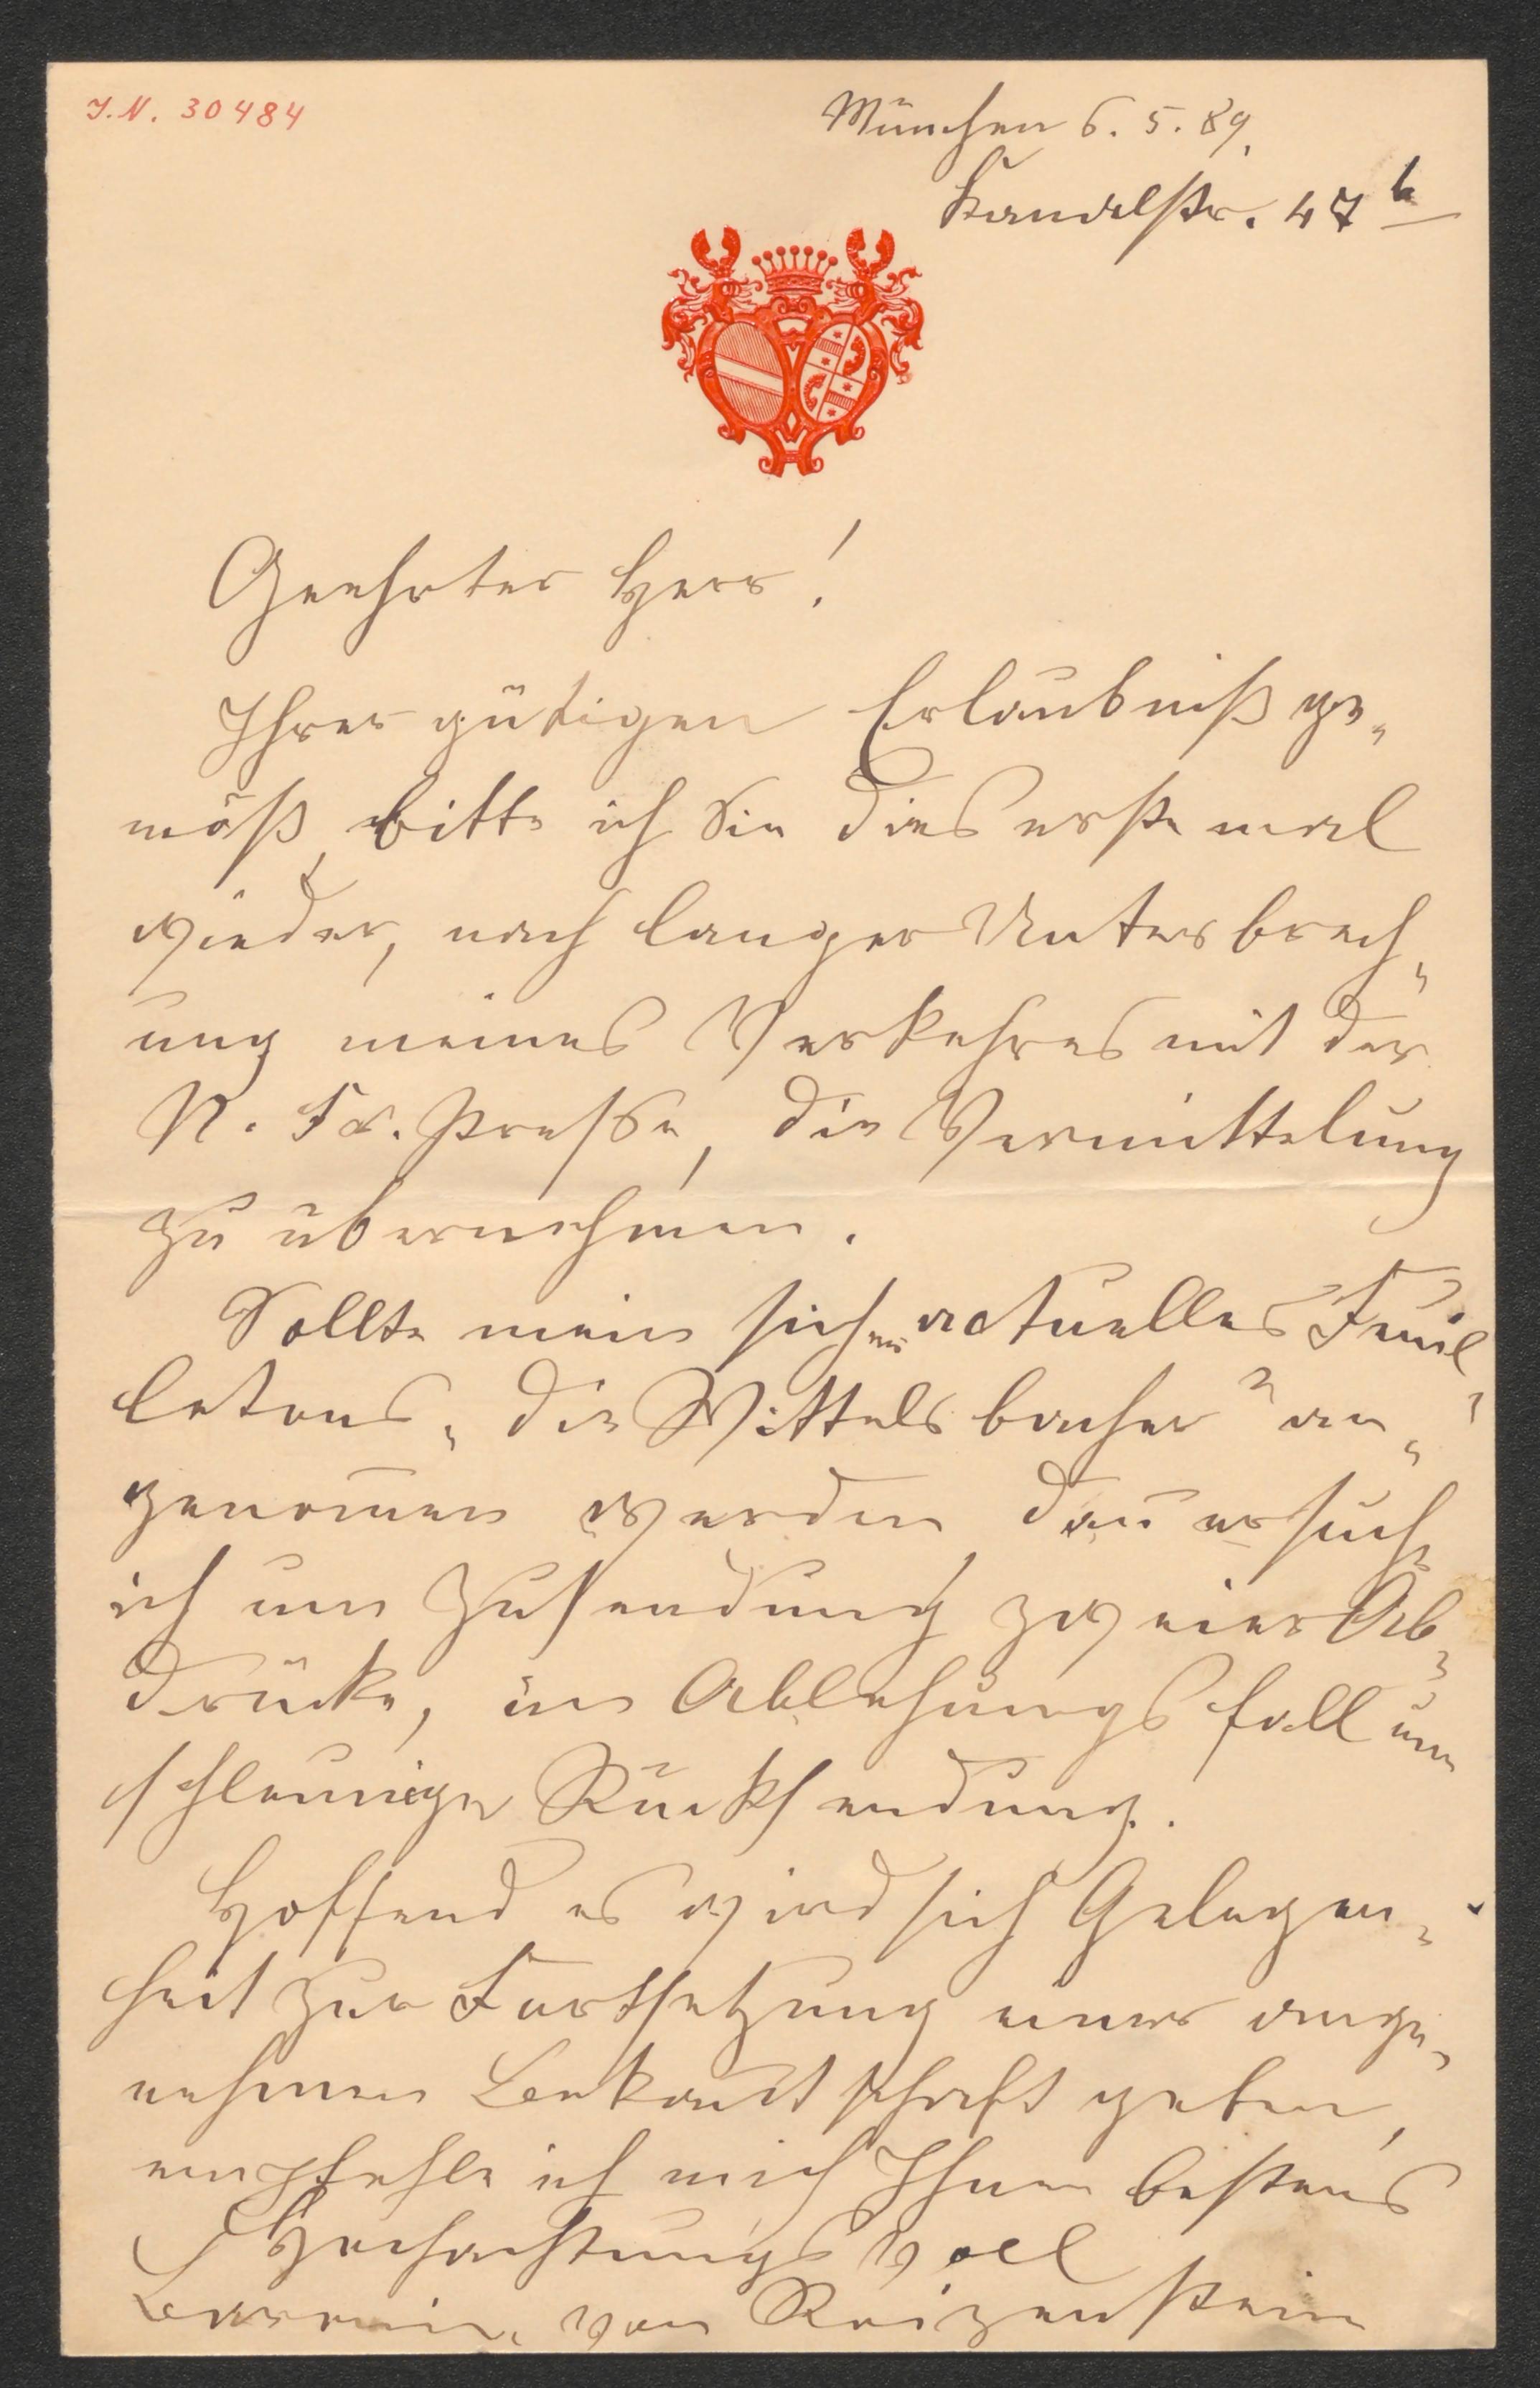 J.N. 30484
München 6. 5. 89.
Kanalstr. 47 b
Geehrter Herr!
Ihrer gütigen Erlaubniß ge„
mäß, bitte ich Sie dies erste mal
wieder, nach langer Unterbrech„
ung meines Verkehres mit der
N. Fr. Presse, die Vermittelung
zu übernehmen.
Sollte mein actuelles Feuil„
letons „die Wittelsbacher" an„
genom̄en werden, dan̄ ersuche
ich um Zusendung zweier Ab„
drücke, im Ablehungsfall um
schleunige Rücksendung.
Hoffend es wird sich Gelegen„
heit zur Fortsetzung einer ange„
nehmen Bekan̄tschaft geben,
empfehle ich mich Ihnen bestens
Hochachtungsvoll
Baronin von Reizenstein